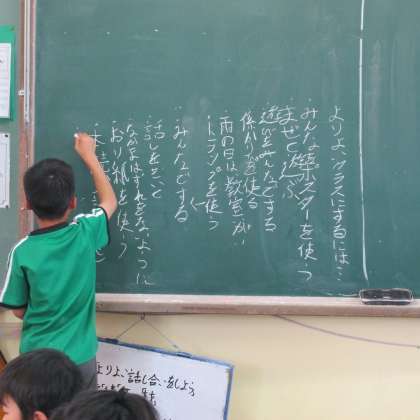 よりよいクラスにするには…
・みんな集ポスターを使う
・まぜて遊ぶ
・遊びをみんなでする
・係かつを使う
・雨の日は教室がい
・トランプを使う
・みんなでする
・話しをきいて
・なかまはずれをしないように
・おり紙を使う
よりよい話し合いをしよう